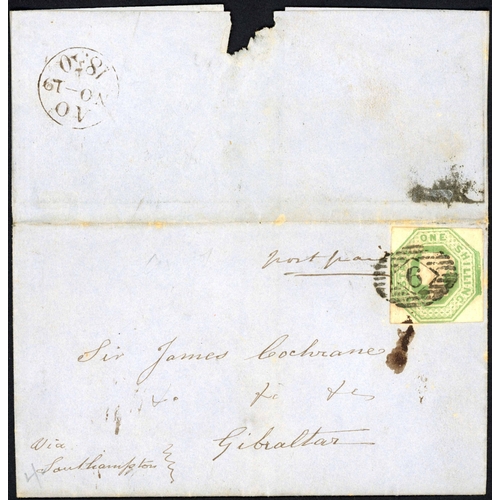 1850
NO-19
post paid
ONE SHILLING
Sir James Cochrane
&c &c
Gibraltar
Via
Southampton